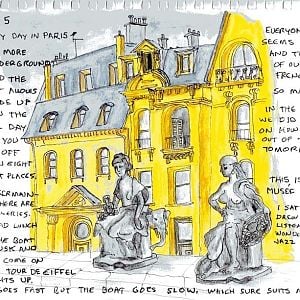 5
Y DAY IN PARIS
MORE
DERGROUND
D THE
T ALLOWS
DE UP
N THE
L DAY
YOU
OFF
N EIGHT
T PLACES.
GERMAIN
HERE ARE
NERIES.
AD LUNCH
HE BOAT
USK AND
COME ON
TOUR DE EIFFEL
HTS UP.
GOES FAST BUT THE BOAT GOES SLOW, WHICH SURE SUITS
EVERYON
SEEMS
AND T
OF OU
FREN
SO M
IN THE
WE DID
ON HOW
OUT OF
TOMOR
THIS I
MUSÉE
I SAT
DREW
LISTEN
WONDE
JAZZ